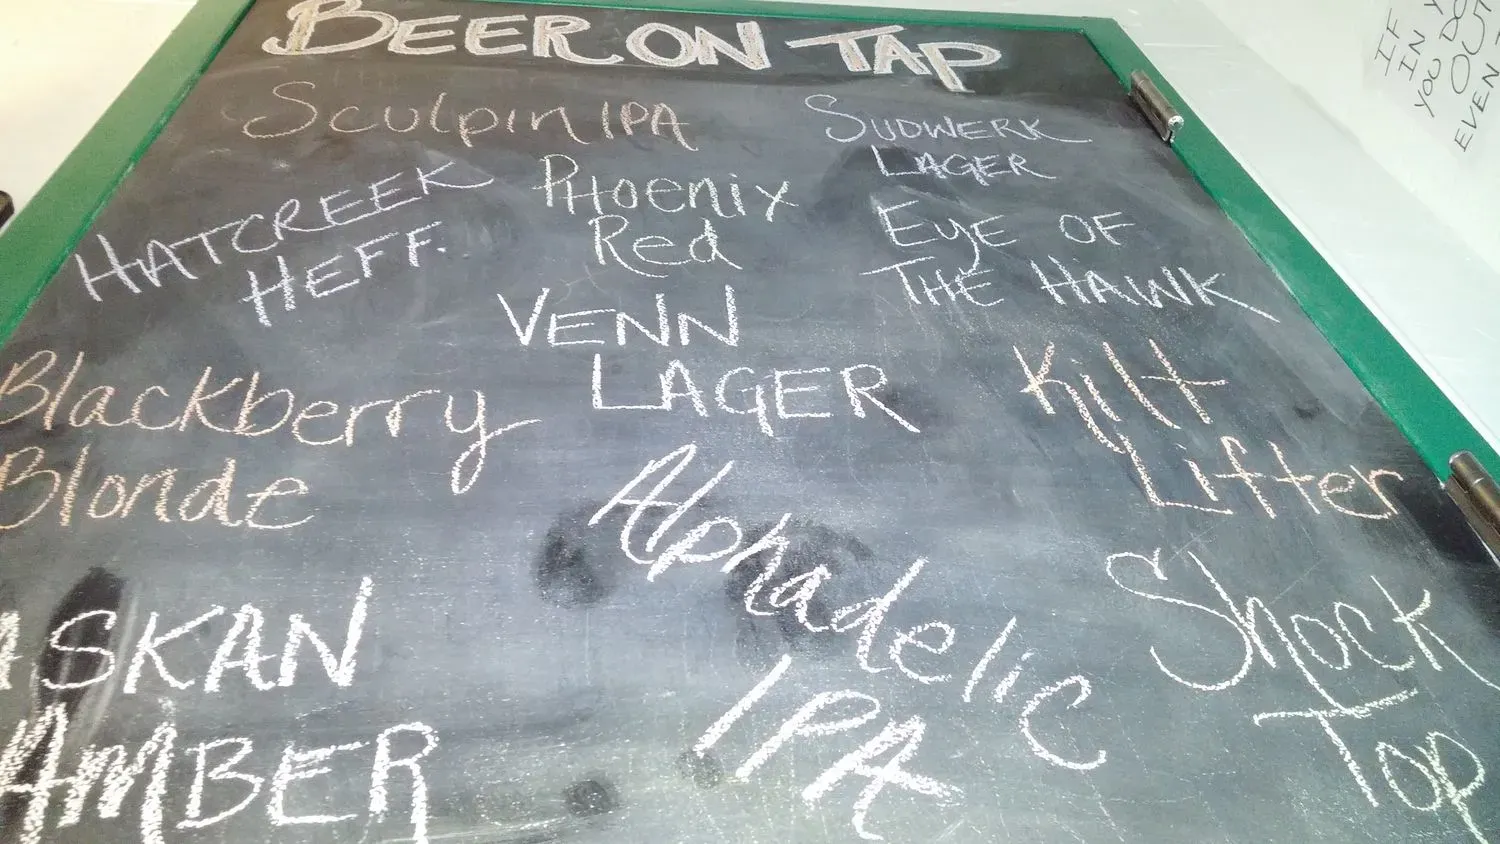 BEER ON TAP
Sculpin IPA
SUDWERK
LAGER
HATCREEK
HEFF.
PHoenix
Red
EyE OF
THE HAWK
VENN
LAGER
Blackberry
Blonde
Kilt
Lifter
Alphadelic
IPA
ASKAN
AMBER
Shock
Top
IF
IN
YOU DO
OUT
EVEN